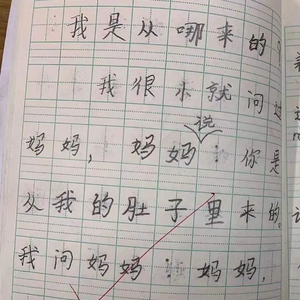 我是从哪来的？
我很小就问妈
妈妈，妈妈说：你是
从我的肚子里来的。
我问妈妈：妈妈，